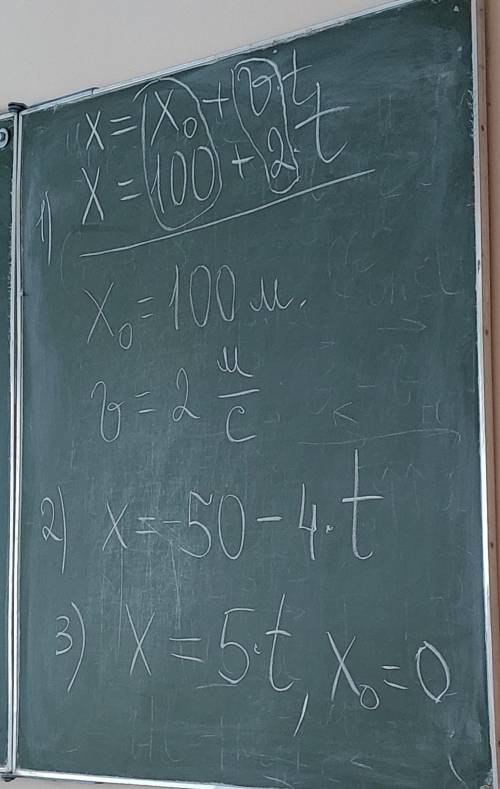 x = x₀ + υt
1) x = 100 + 2·t
x₀ = 100 м.
υ = 2 м/с
2) x = -50 - 4·t
3) x = 5·t, x₀ = 0